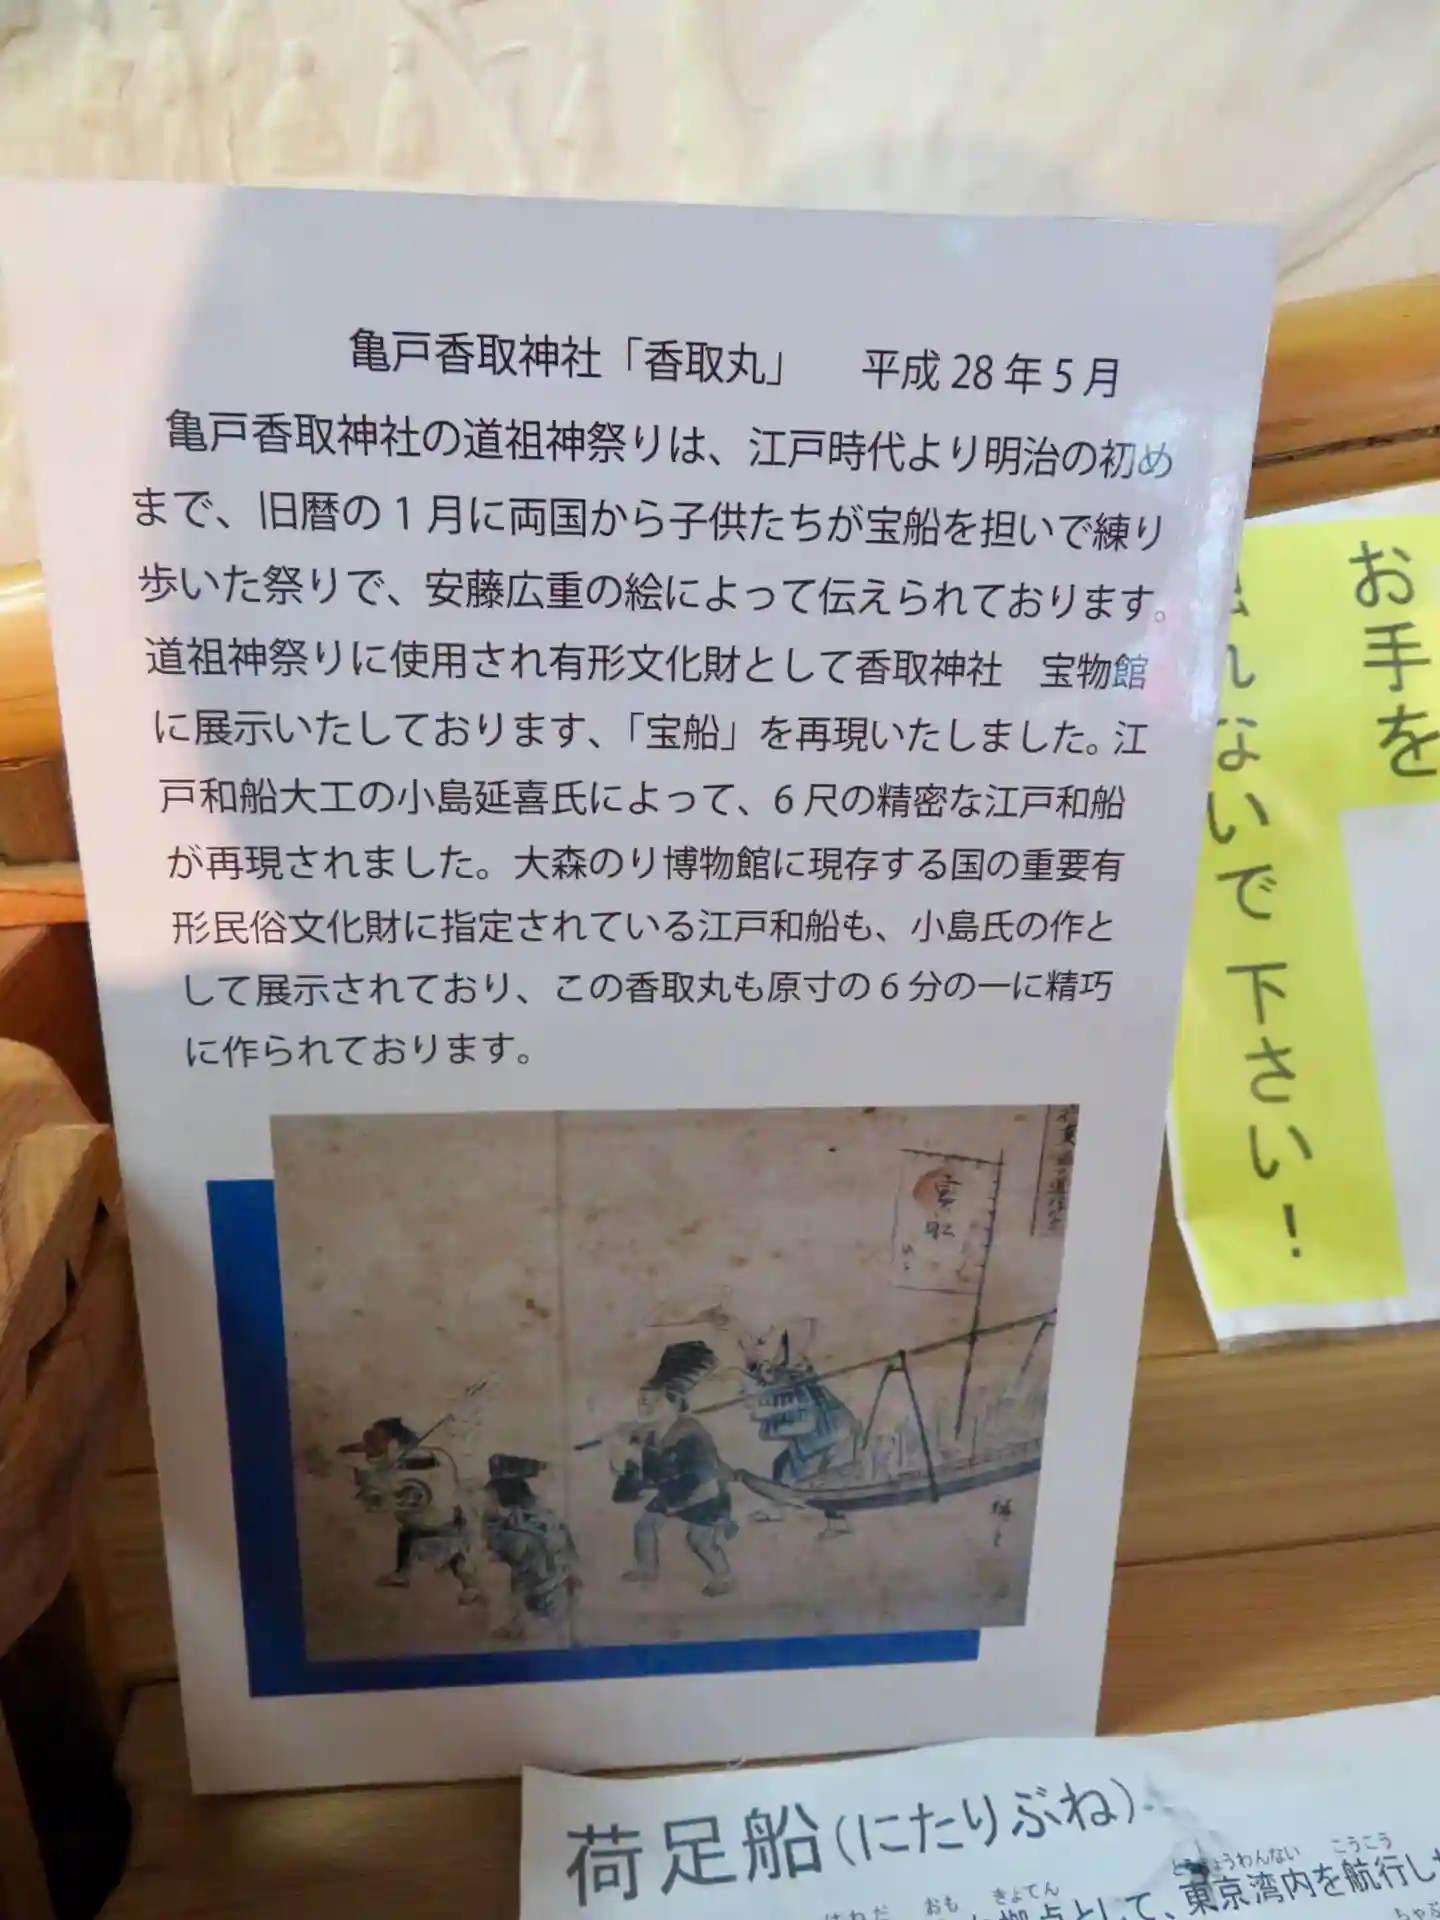 亀戸香取神社「香取丸」　平成 28 年 5 月
亀戸香取神社の道祖神祭りは、江戸時代より明治の初め
まで、旧暦の 1 月に両国から子供たちが宝船を担いで練り
歩いた祭りで、安藤広重の絵によって伝えられております。
道祖神祭りに使用され有形文化財として香取神社　宝物館
に展示いたしております、「宝船」を再現いたしました。江
戸和船大工の小島延喜氏によって、6 尺の精密な江戸和船
が再現されました。大森のり博物館に現存する国の重要有
形民俗文化財に指定されている江戸和船も、小島氏の作と
して展示されており、この香取丸も原寸の 6 分の一に精巧
に作られております。
お手を
れないで下さい！
荷足船(にたりぶね)
東京湾内を航行し